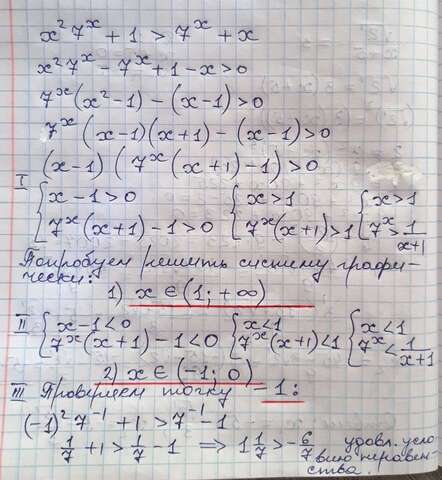 x² 7ˣ + 1 > 7ˣ + x
x² 7ˣ - 7ˣ + 1 - x > 0
7ˣ (x² - 1) - (x - 1) > 0
7ˣ (x - 1)(x + 1) - (x - 1) > 0
(x - 1) (7ˣ (x + 1) - 1) > 0
I { x - 1 > 0 { x > 1 { x > 1
7ˣ (x + 1) - 1 > 0 7ˣ (x + 1) > 1 7ˣ > 1/(x + 1)
Попробуем решить систему графи-
чески:
1) x ∈ (1; +∞)
II { x - 1 < 0 { x < 1 { x < 1
7ˣ (x + 1) - 1 < 0 7ˣ (x + 1) < 1 7ˣ < 1/(x + 1)
2) x ∈ (-1; 0)
III Проверяем точку -1:
(-1)² 7⁻¹ + 1 > 7⁻¹ - 1
1/7 + 1 > 1/7 - 1 ⇒ 1 1/7 > - 6/7 удовл. усло
вию неравен-
ства.